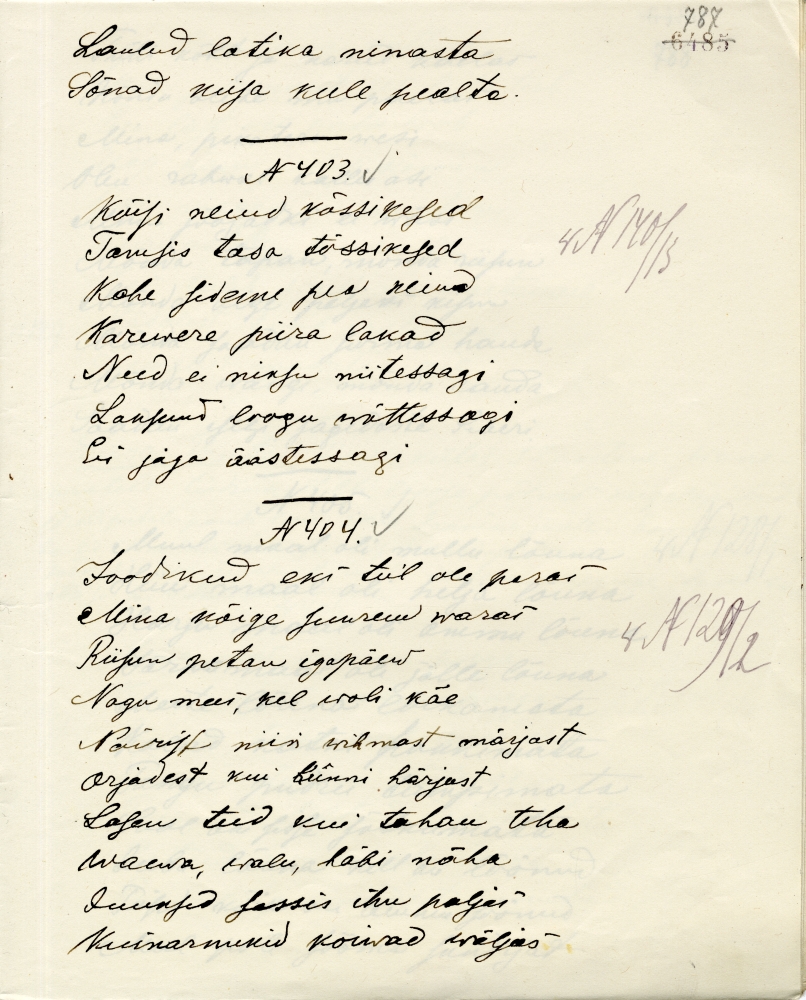 787
6485
Laulud latika ninasta
Sõnad kiisa keele pealta.
N 403.
Käisi neiud kässikesed
Tarusis tasa tössikesed
Kahe sideme pea neiud
Karuwere piira lakad
Need ei niksu niitessagi
Laksund loogu wõttessagi
Ei jaga äästessagi
4 N 140/13
N 404.
Joodikud eks teil ole paras
Mina kõige suurem waras
Riisun petan igapäew
Nagu mees, kel woli käe
Näirist niin wihmast märjast
Orjadest kui künni härjast
Lasen teid kui tahan teha
Waewa, walu, häbi näha
Juuksed sassis ihu paljas
Kuinarnukid koiwad wäljas
4 N 129/2